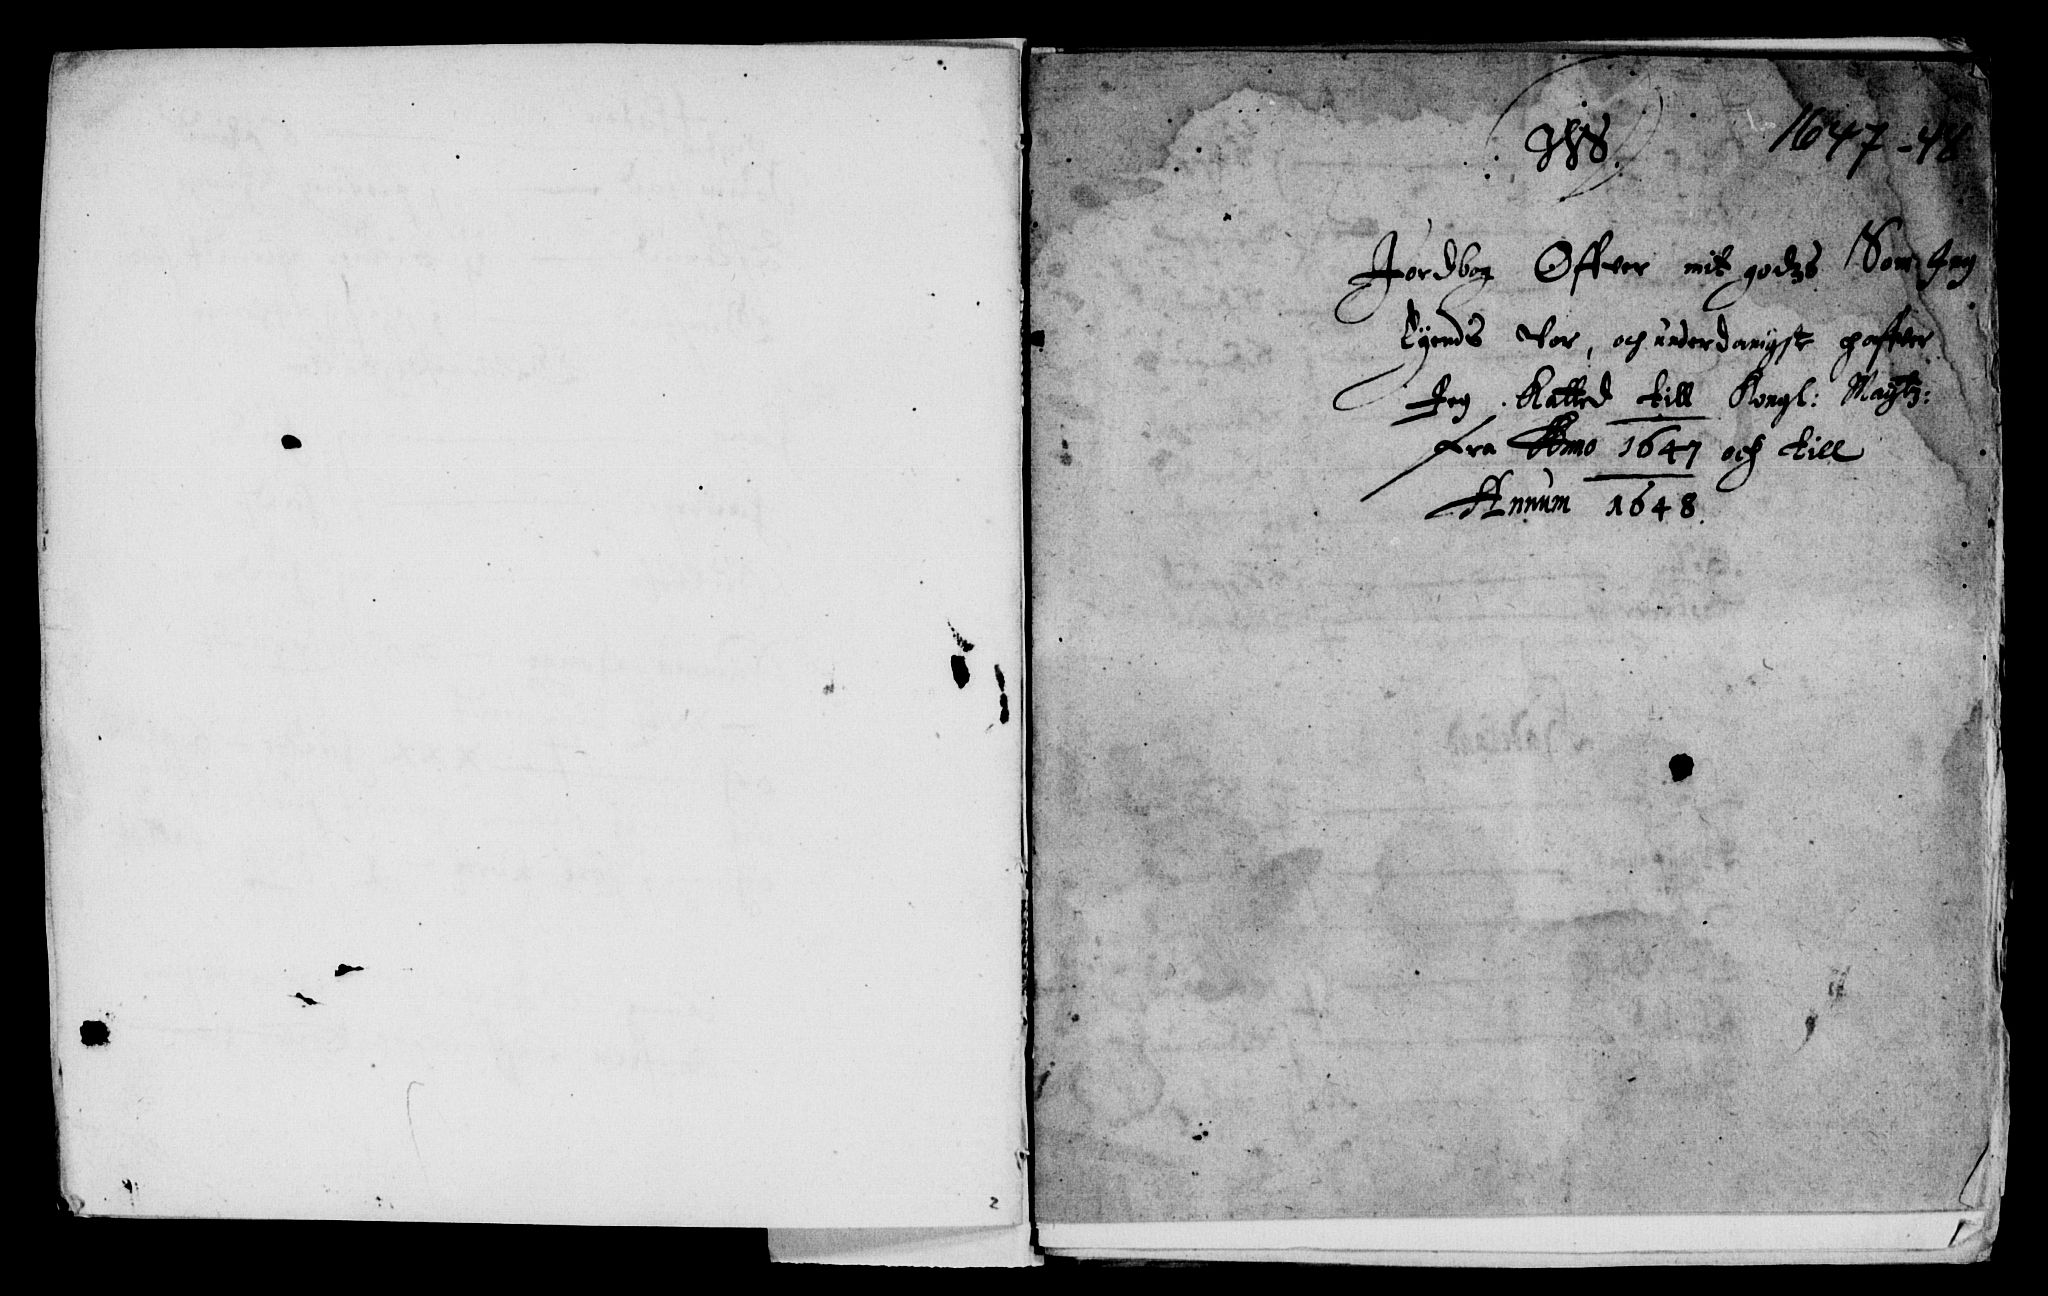 JHS.
1647-48
Jordbog Offver mit godzs Som Jeg
Eyends vor, och underdanigst haffver
Jeg Katted till Kongl: Maytz:
fra Anno 1647 och till
Annum 1648
2